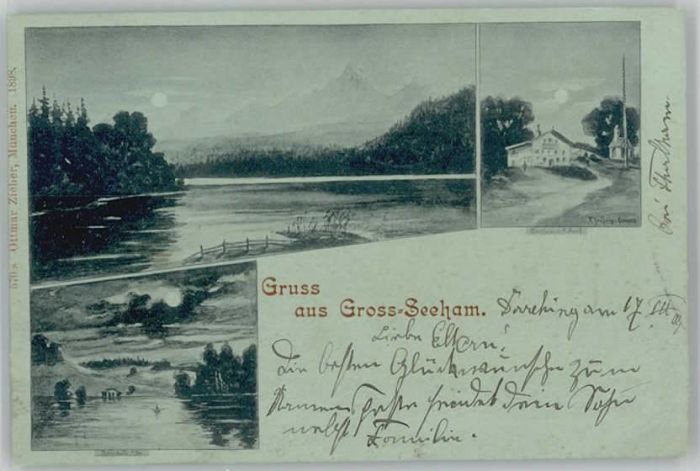 5705 Ottmar Zieher, München. 1898.
Gruss
aus Gross-Seeham.
Darching am 17.
bei Thalham.
Liebe Eltern!
Die besten Glückwünsche zum
Namensfeste sendet dem Sohn
nebst Familie.